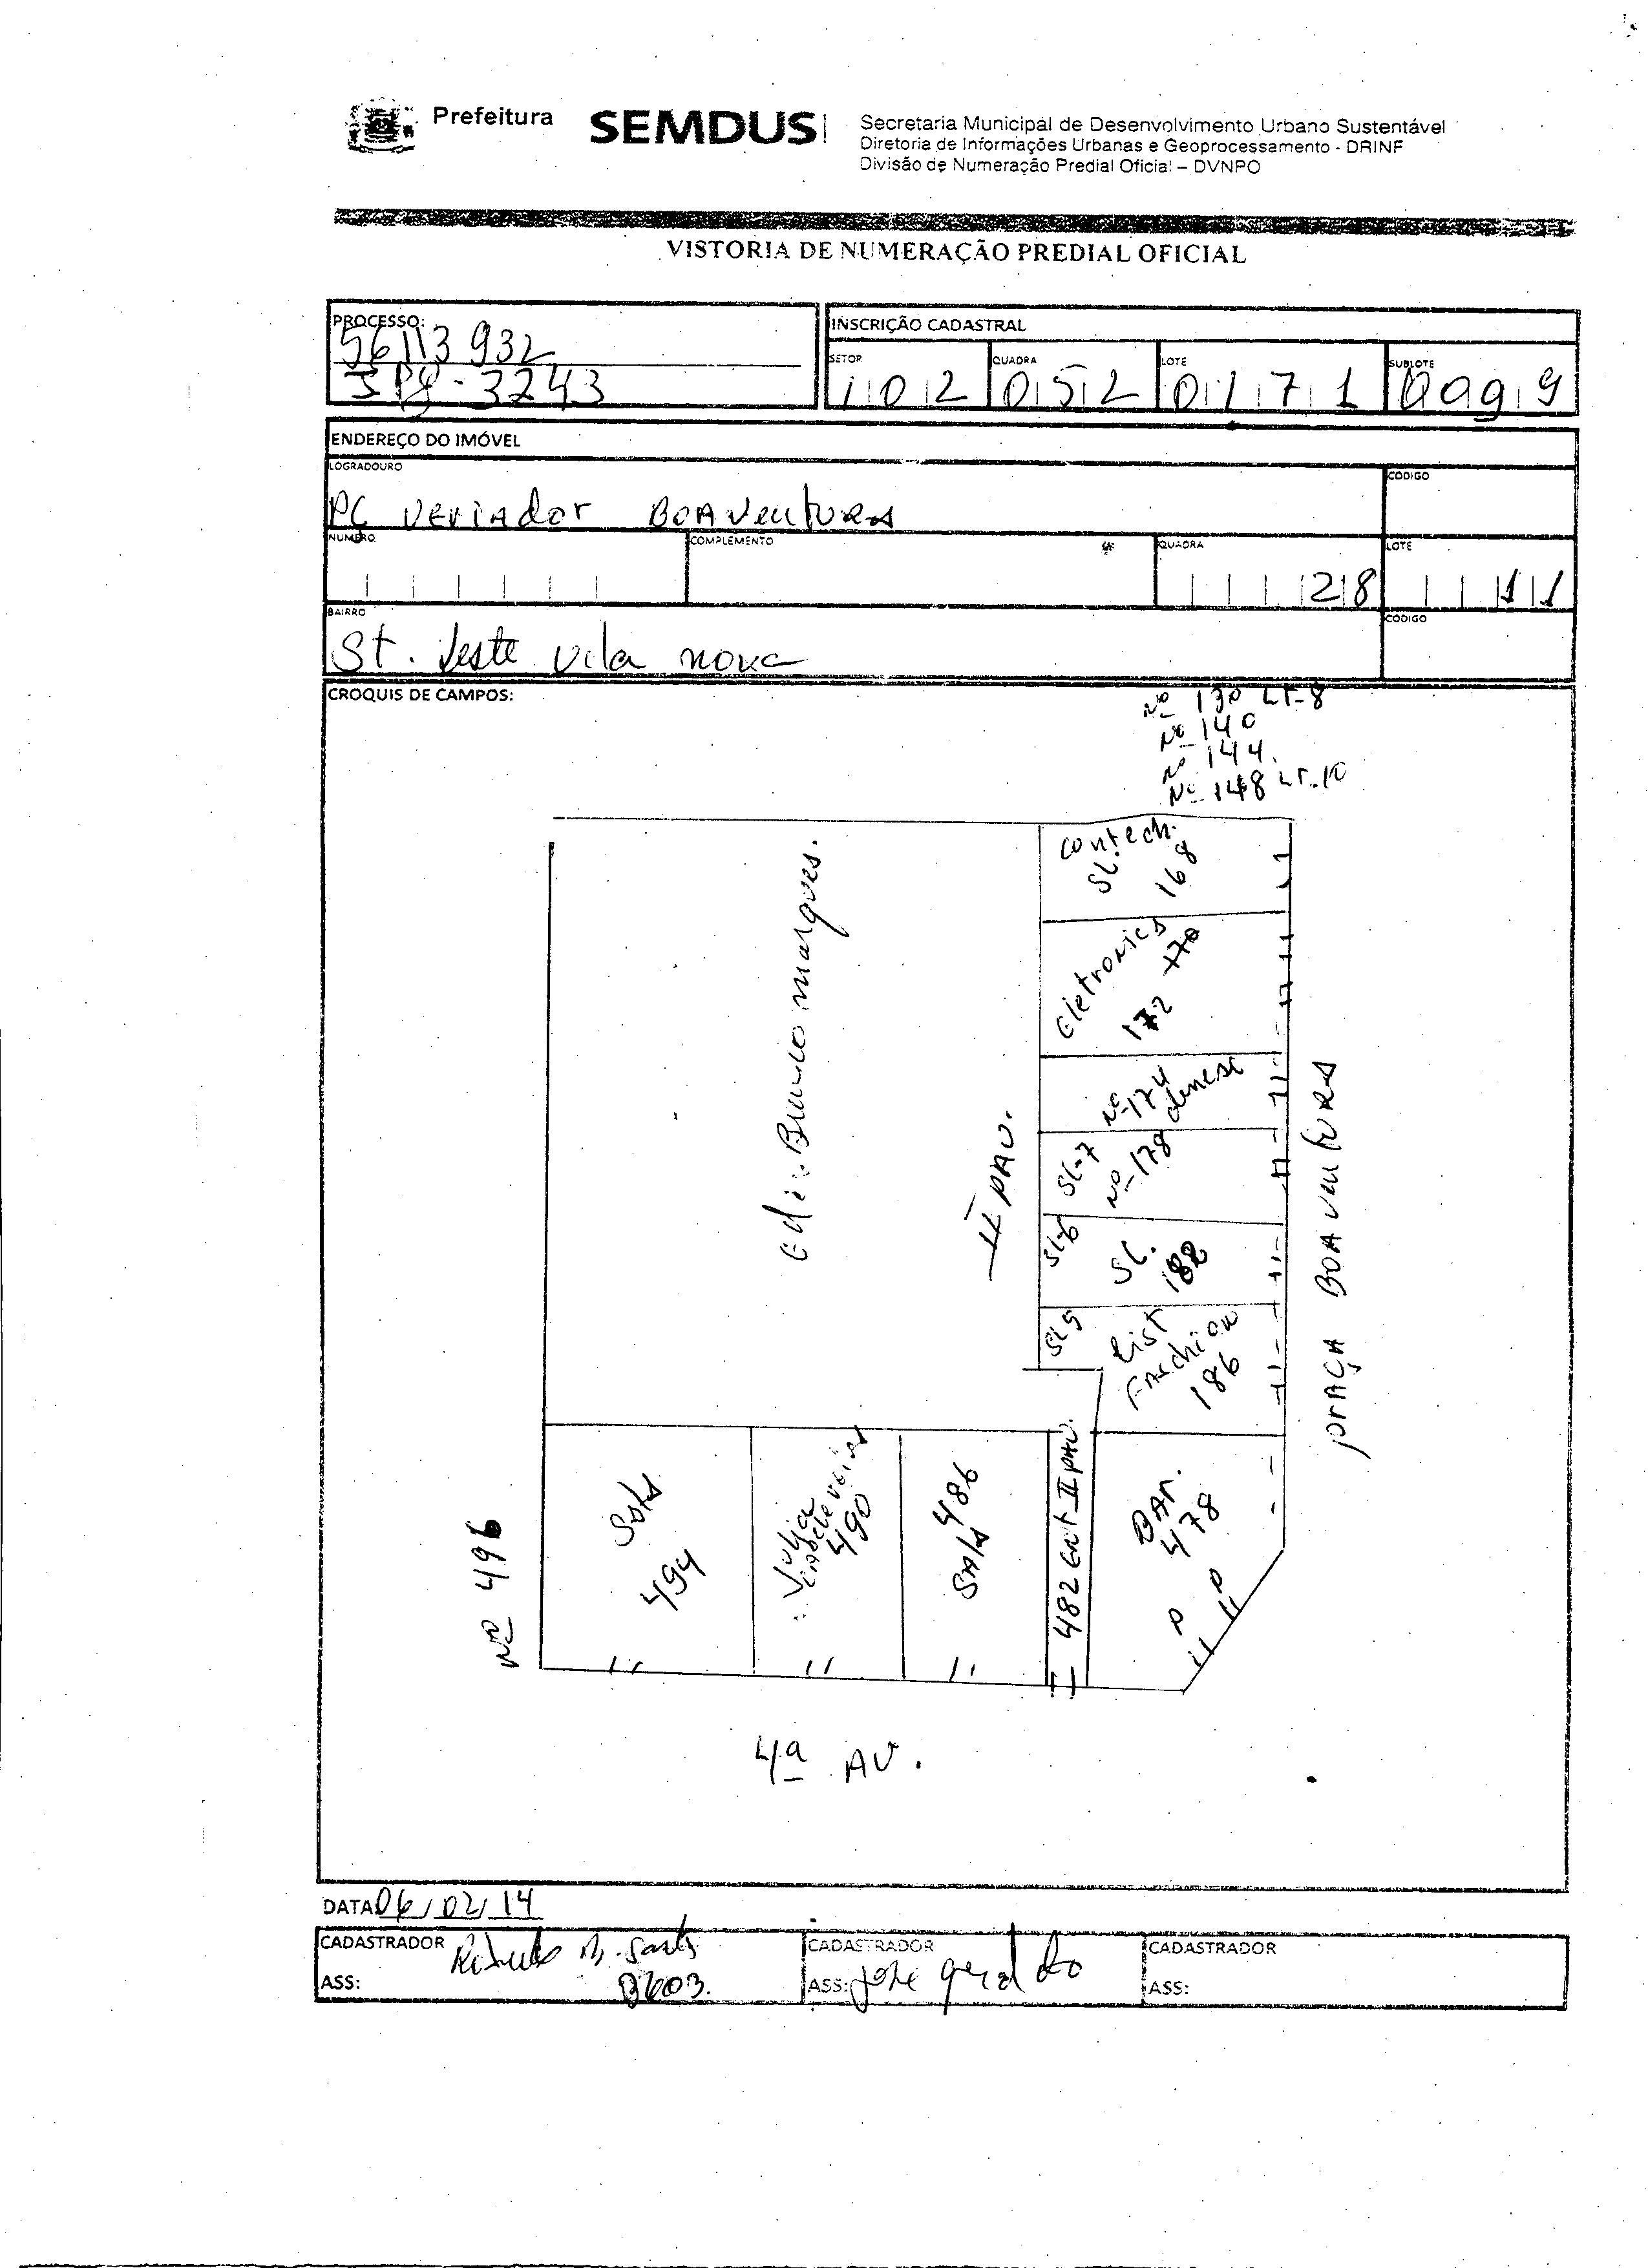 Prefeitura SEMDUS
Secretaria Municipal de Desenvolvimento Urbano Sustentável
Diretoria de Informações Urbanas e Geoprocessamento - DRINF
Divisão de Numeração Predial Oficial – DVNPO
VISTORIA DE NUMERAÇÃO PREDIAL OFICIAL
PROCESSO:
56113932
3243
INSCRIÇÃO CADASTRAL
SETOR QUADRA LOTE SUBLOTE
102 052 0171 0009
ENDEREÇO DO IMÓVEL
LOGRADOURO CODIGO
PC Veriador BOAVentURA
NUMERO COMPLEMENTO QUADRA LOTE
28 11
BAIRRO CODIGO
St. Leste Vila nova
CROQUIS DE CAMPOS:
Nº 130 LT-8
Nº 140
Nº 144.
Nº 148 LT-10
contech.
SL. 168
Eletronics
170
172
Nº 174
SL-7
Nº 178
SL-6
SL. 182
SL5
List
Faschion
186
Edi. Bruno marques.
II PAV.
prAÇA BOAVentURA
Nº 496
Sala
494
Julia
490
SALA 486
482 ent II PAV.
BAR.
478
4ª AV.
DATA 06/02/14
CADASTRADOR
ASS: 
CADASTRADOR
ASS: José geraldo
CADASTRADOR
ASS: